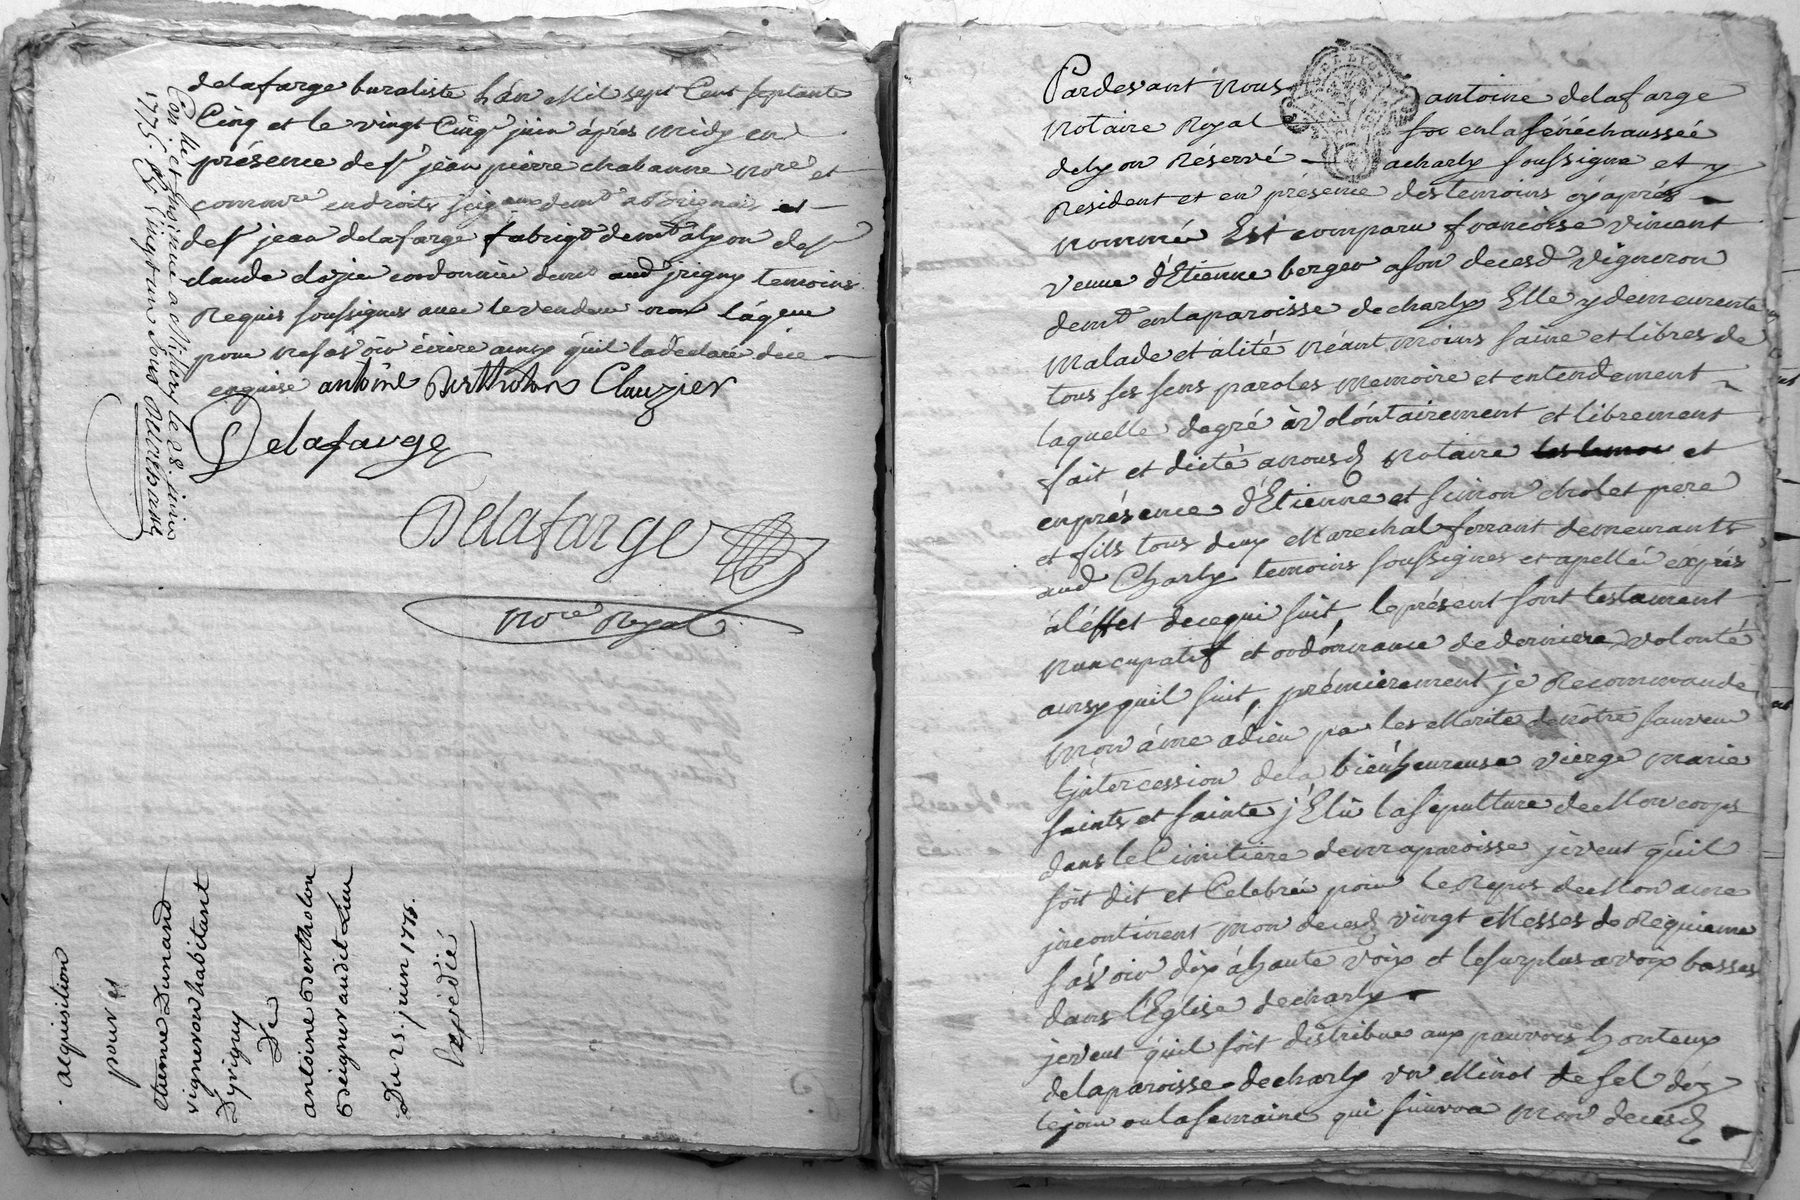 delafarge buraliste L'an Mil sept Cent septante
Cinq et le vingt Cinqe juin áprés midy en
présence de sr jean pierre chabanne nore et
commre en droits seigaux demt a Brignais et
de sr jean delafarge fabriqt demt alyon de sr
claude cordonnier demt aud jrigny temoins
Requis soussignes avec le vendeur non l'áqeur
pour ne savoir écrire ainsy quil la declaré de ce
enquise antoine Bertholon Clauzier
Delafarge
Delafarge
Nore Royal
Con lle et
1775. Rs vingt un sous
acquisition
pour et
etienne Dunand
vigneron habitant
Dyrigny
De
antoine Bertholon
Peigneur audit Lieu
Du 25. juin 1775.
Expédié
Pardevant Nous antoine delafarge
Notaire Royal en la sénéchaussée
delyon Réservé acharly soussigné et y
Résident et en présence des temoins cyáprés
nommés Est comparu francoise vincent
veuve d'Etienne berger a son deces vigneron
demt en laparoisse decharly Elle y demeurente
Malade et álité Néant moins saine et libres de
tous ses sens paroles memoire et entendement
laquelle degré à volontairement et librement
fait et dicté anousd notaire et
enprésence d'Etienne et simon cholet pere
et fils tous deux Marechal ferrant demeurants
aud Charly temoins soussignes et apellé exprés
áléffet decequi suit, leprésent sont testament
nuncupatif et ordonnance de derniere volonté
ainsy quil suit, prémiérement je Recommande
mon áme ádieu par les Merite denôtre sauveur
l'jntercession dela biénheureuse vierge marie
saints et sainte j'Elû lasépulture deMon corps
dans le Cimitiére demaparoisse jeveut qúil
soit dit et Celebré pour le Repos deMon ame
jncontinent mon decesd vingt Messes de Réquieme
sávoir dix áhaute vôix et lesurplus avoix basses
dans l'Eglise decharly
jeveut qúil soit distribue aux pauvres honteux
delaparoisse decharly un Minot de sel déz
le jour ou lasemaine qui suivra mon decesd